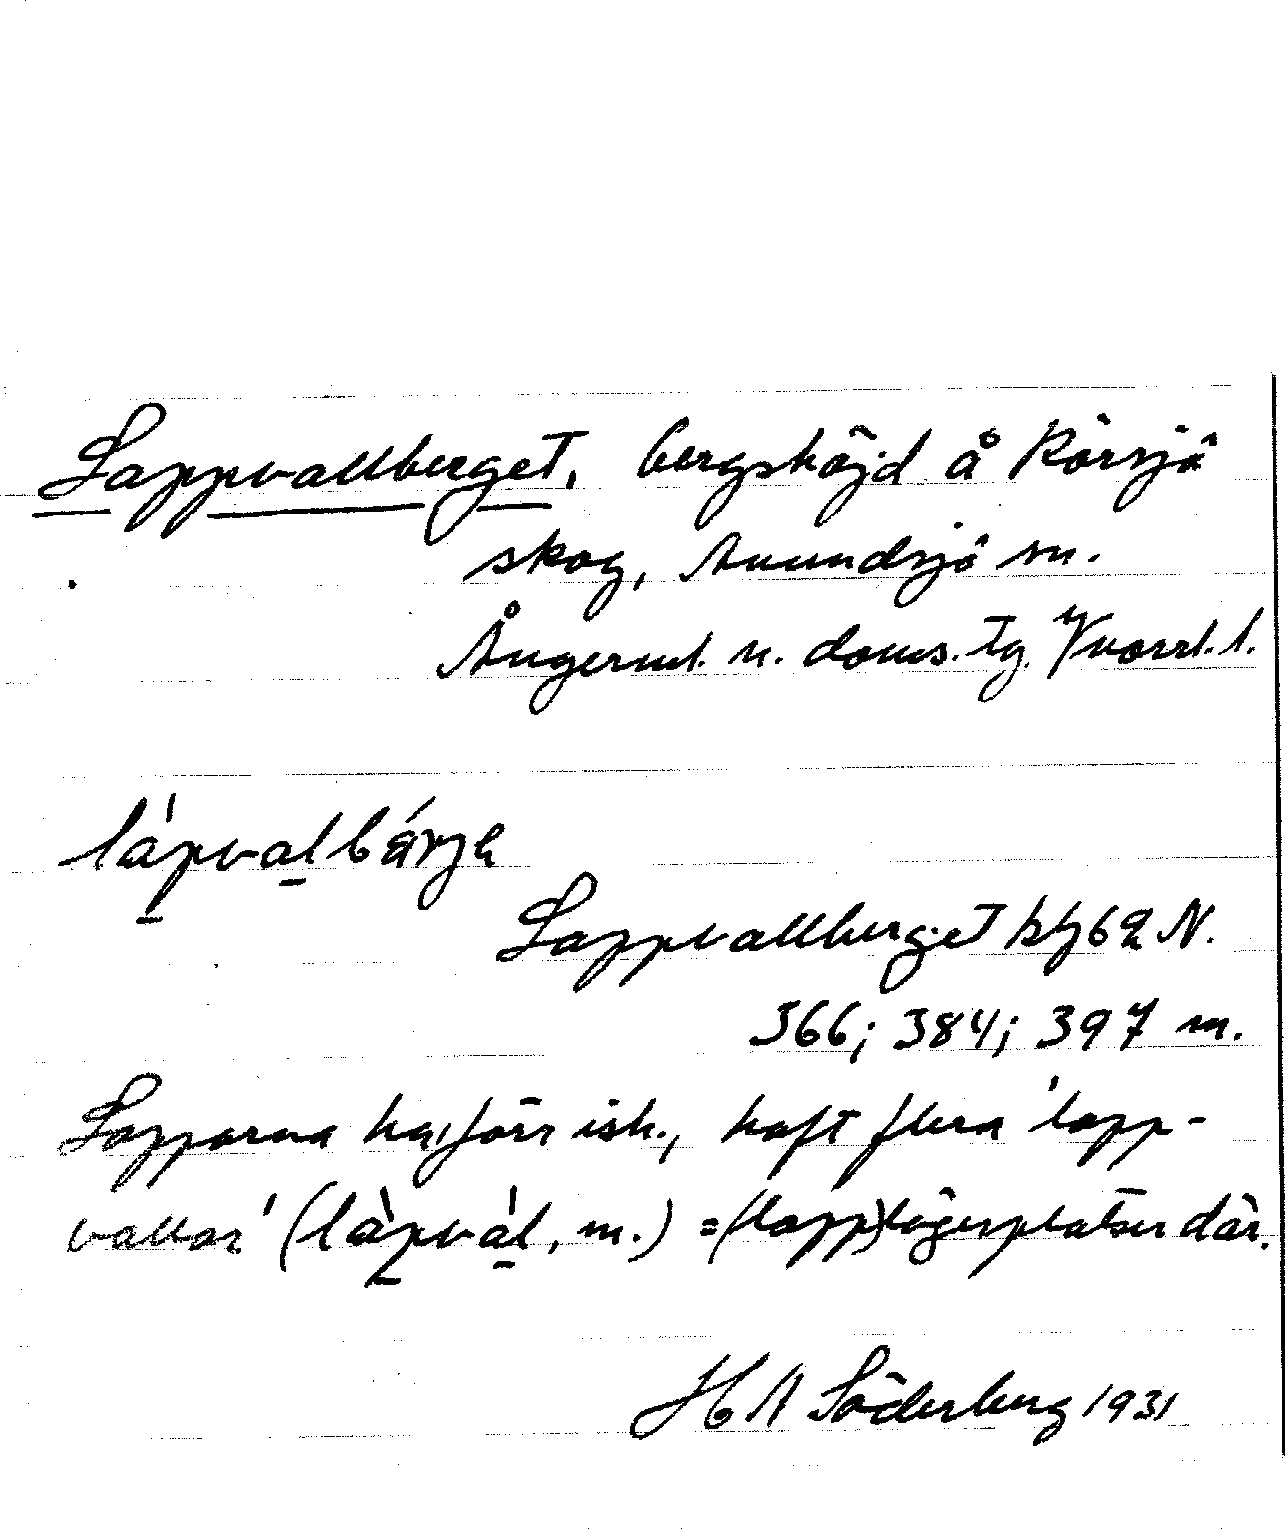 Lappvallberget, bergshöjd å Rörsjö
skog, Anundsjö sn.
Ångerml. n. doms. tg. Vnorrl. l.
lápvalbárjə
Lappvallberget kbl 62 N.
366; 384; 397 m.
Lapparna ha, förr ish., haft flera 'lapp-
vallar' (làpvál, m.) = (lapp)lägerplatser där.
H A Söderberg 1931